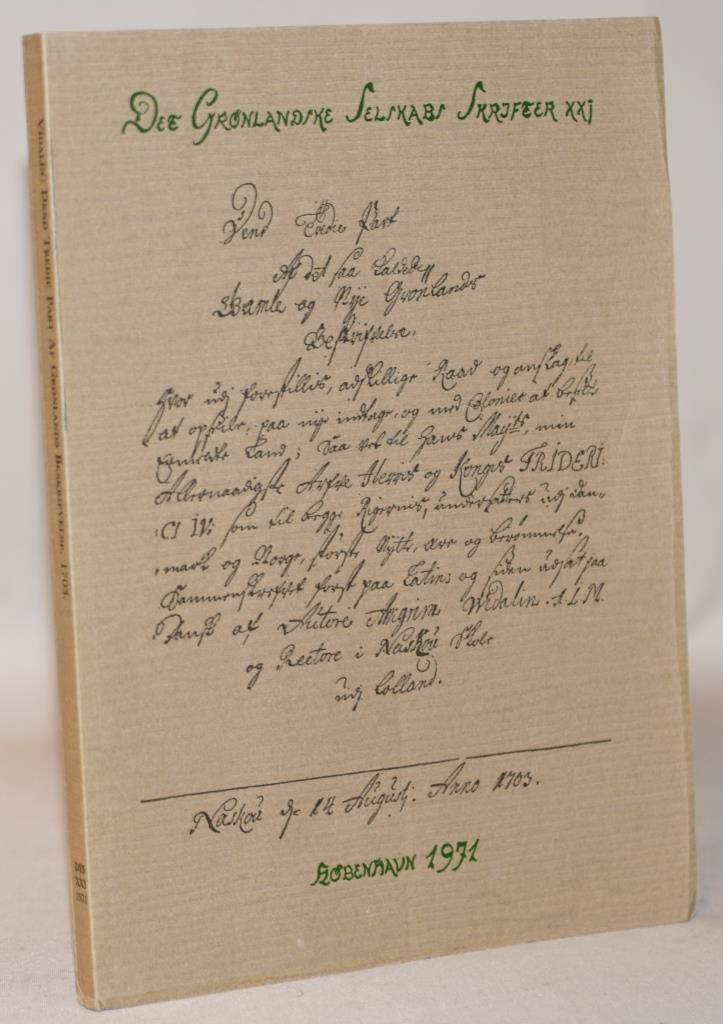 Det Grønlandske Selskabs Skrifter XXI
Dend Tredie Part
Af det saa kaldede
Gamle og Nye Grönlands
Beskrifvelse.
Hvor udj forestillis, adskillige Raad og anslag, til
at opseile, paa nye indtage, og med Colonier at besette
Land; saa vel til Hans Mayts, min
Allernaadigste Arfve Herris og Kongis FRIDERI:
CI IV: som til begge Rigernis, undersatters udj Dan-
mark og Norge, störste Nytte, ære og berömmelse.
Sammenskrefvet först paa Latin; og siden udsat paa
Dansk af Autore Arngrim Widalin. A.L.M.
og Rectore i Naskou Skole
udj Lolland.
Naskou d. 14 Augustj. Anno 1703.
København 1971
Vidalin: Dend Tredie Part Af Grønlands Beskrivelse. 1703.
DGS
XXI
1971